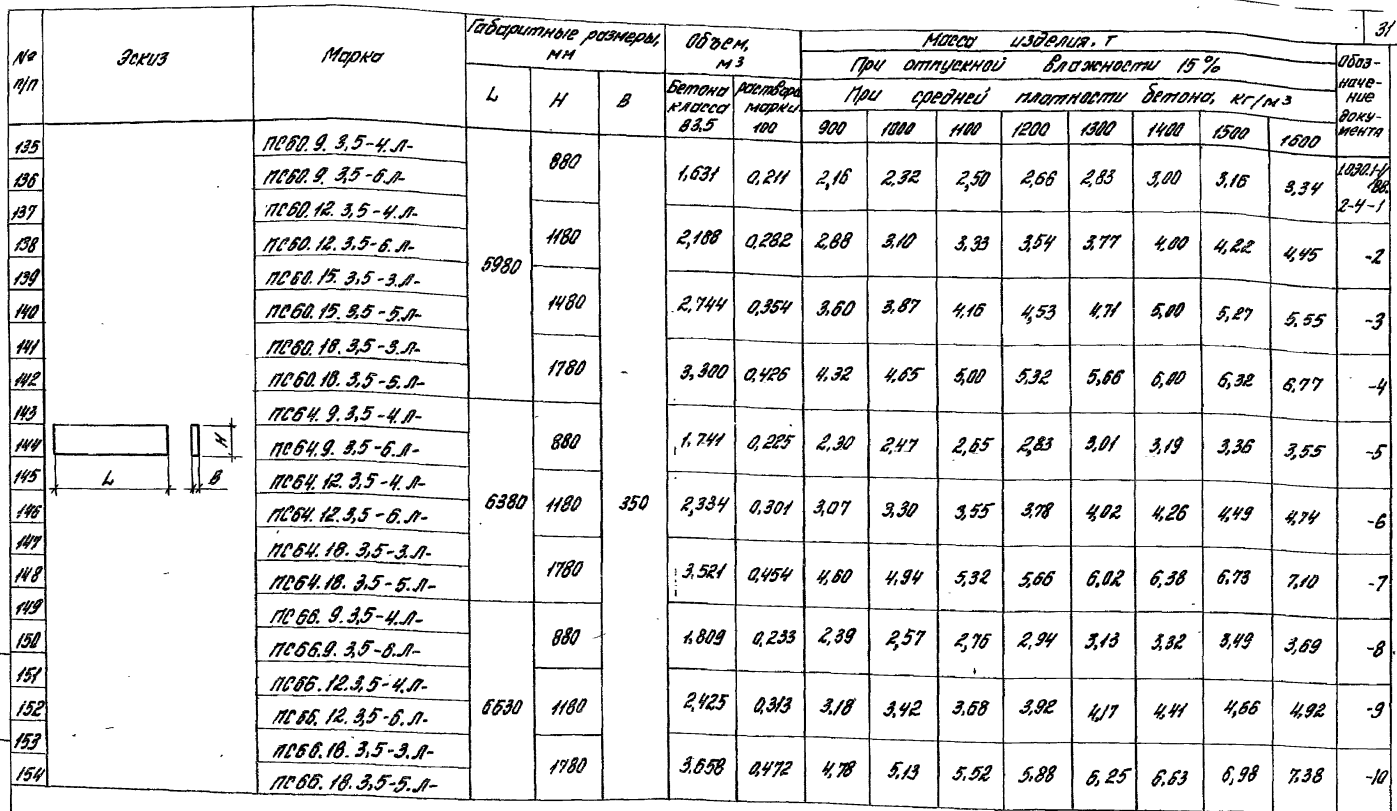 31
№ п/п Эскиз Марка Габаритные размеры, мм Объем, м3 Масса изделия, т Обоз-наче-ние доку-мента
При отпускной влажности 15 %
L H B Бетона класса В3,5 раствора марки 100 При средней плотности бетона, кг/м3
900 1000 1100 1200 1300 1400 1500 1600
135 ПС60.9.3,5-4.Л-
5980 880 350 1,631 0,211 2,16 2,32 2,50 2,66 2,83 3,00 3,16 3,34 1.030.1-1/88. 2-4-1
136 ПС60.9.3,5-6.Л-
137 ПС60.12.3,5-4.Л-
1180 2,188 0,282 2,88 3,10 3,33 3,54 3,77 4,00 4,22 4,45 -2
138 ПС60.12.3,5-6.Л-
139 ПС60.15.3,5-3.Л-
1480 2,744 0,354 3,60 3,87 4,16 4,53 4,71 5,00 5,27 5,55 -3
140 ПС60.15.3,5-5.Л-
141 ПС60.18.3,5-3.Л-
1780 3,300 0,426 4,32 4,65 5,00 5,32 5,66 6,00 6,32 6,77 -4
142 ПС60.18.3,5-5.Л-
143 ПС64.9.3,5-4.Л-
6380 880 1,741 0,225 2,30 2,47 2,65 2,83 3,01 3,19 3,36 3,55 -5
144 ПС64.9.3,5-6.Л-
H
L B
145 ПС64.12.3,5-4.Л-
1180 2,334 0,301 3,07 3,30 3,55 3,78 4,02 4,26 4,49 4,74 -6
146 ПС64.12.3,5-6.Л-
147 ПС64.18.3,5-3.Л-
1780 3,521 0,454 4,60 4,94 5,32 5,66 6,02 6,38 6,73 7,10 -7
148 ПС64.18.3,5-5.Л-
149 ПС66.9.3,5-4.Л-
6630 880 1,809 0,233 2,39 2,57 2,76 2,94 3,13 3,32 3,49 3,69 -8
150 ПС66.9.3,5-6.Л-
151 ПС66.12.3,5-4.Л-
1180 2,425 0,313 3,18 3,42 3,68 3,92 4,17 4,41 4,66 4,92 -9
152 ПС66.12.3,5-6.Л-
153 ПС66.18.3,5-3.Л-
1780 3,658 0,472 4,78 5,13 5,52 5,88 6,25 6,63 6,98 7,38 -10
154 ПС66.18.3,5-5.Л-